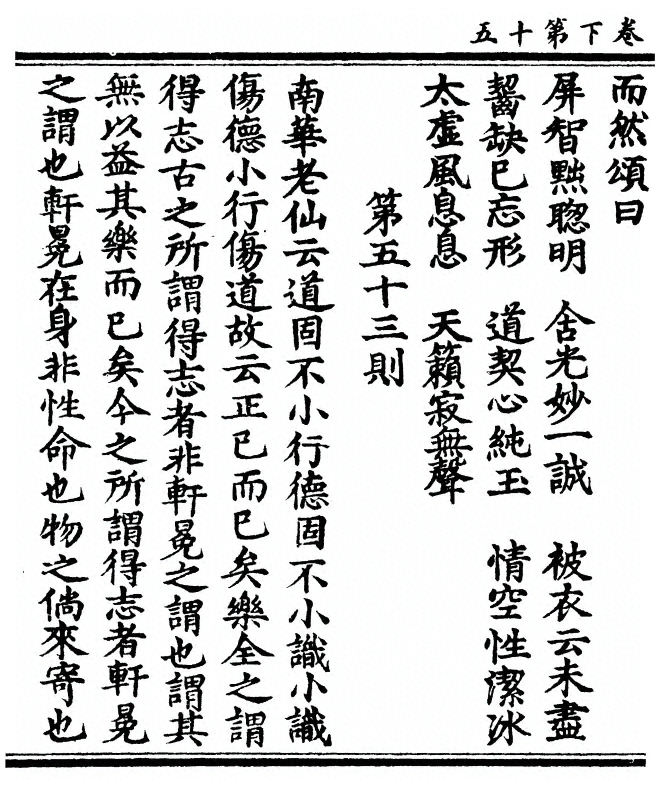 卷下第十五
而然頌曰
屏智黜聦明　含光妙一誠　被衣云未盡
齧缺已忘形　道契心純玉　情空性潔冰
太虛風息息　天籟寂無聲
第五十三則
南華老仙云道固不小行德固不小識小識
傷德小行傷道故云正已而已矣樂全之謂
得志古之所謂得志者非軒冕之謂也謂其
無以益其樂而已矣今之所謂得志者軒冕
之謂也軒冕在身非性命也物之倘來寄也